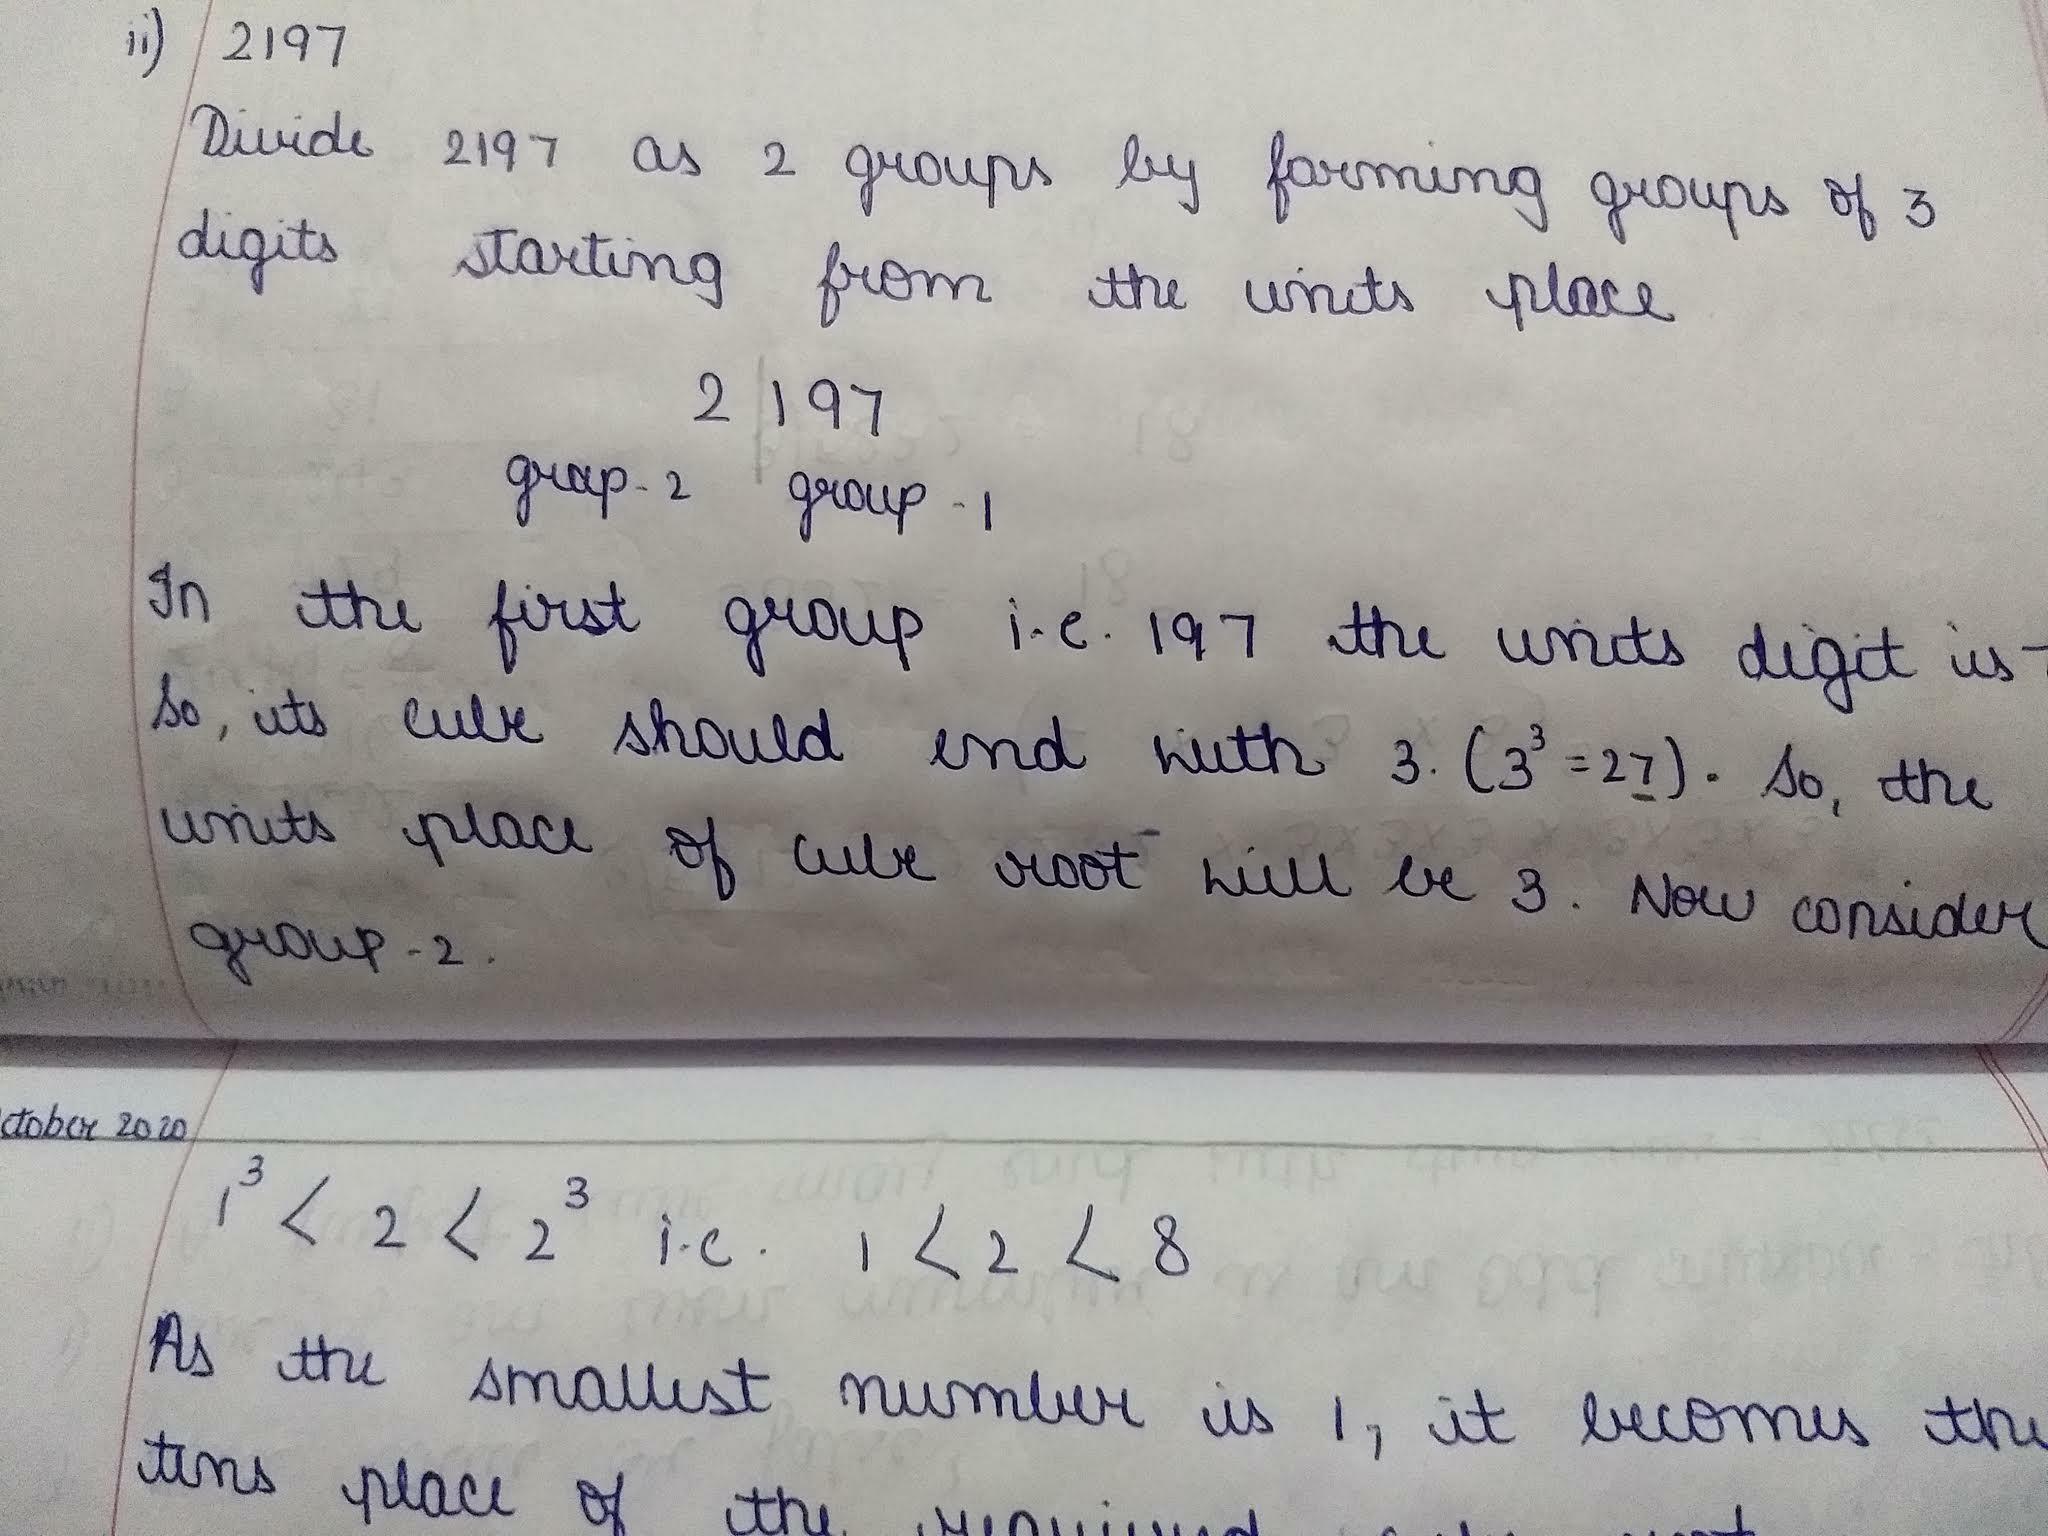 ii) 2197
Divide 2197 as 2 groups by forming groups of 3
digits starting from the units place
2 | 197
group-2 group-1
In the first group i.e. 197 the units digit is 7
So, its cube should end with 3. (3³ = 27). So, the
units place of cube root will be 3. Now consider
group-2.
ctober 2020
1³ < 2 < 2³ i.e. 1 < 2 < 8
As the smallest number is 1, it becomes the
tens place of the required